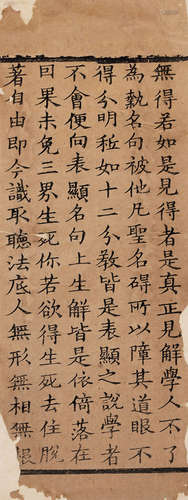 無得若如是見得者是真正見解學人不了
為執名句被他凡聖名礙所以障其道眼不
得分明秖如十二分教皆是表顯之說學者
不會便向表顯名句上生解皆是依倚落在
因果未免三界生死你若欲得生死去住脫
著自由即今識取聽法底人無形無相無根